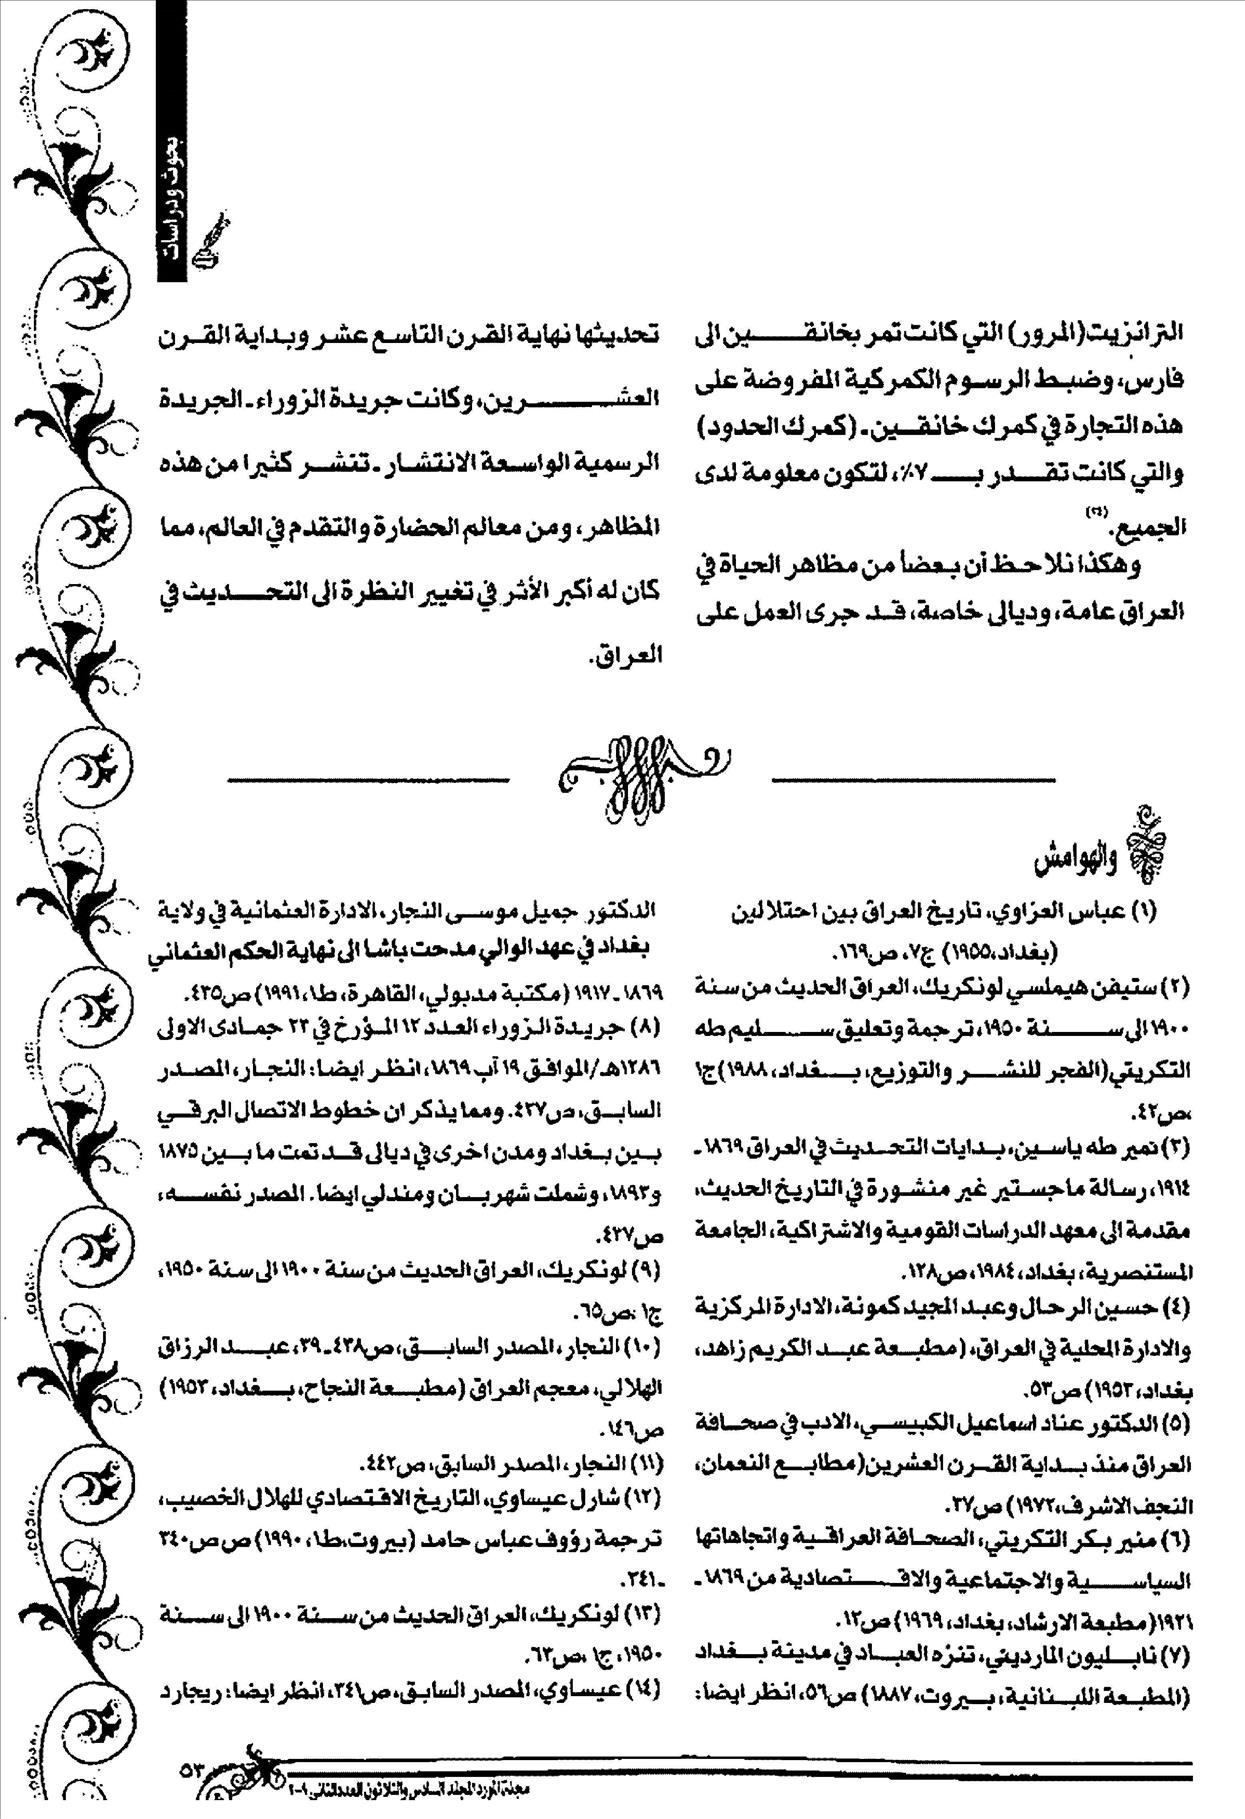 بحوث ودراسات
الترانزيت(المرور) التي كانت تمر بخانقين الى
فارس، وضبط الرسوم الكمركية المفروضة على
هذه التجارة في كمرك خانقين ـ (كمرك الحدود)
والتي كانت تقدر بـ ٧٠٪، لتكون معلومة لدى
الجميع.
وهكذا نلاحظ أن بعضاً من مظاهر الحياة في
العراق عامة، وديالى خاصة، قد جرى العمل على
تحديثها نهاية القرن التاسع عشر وبداية القرن
العشرين، وكانت جريدة الزوراء ـ الجريدة
الرسمية الواسعة الانتشار ـ تنشر كثيرا من هذه
المظاهر، ومن معالم الحضارة والتقدم في العالم، مما
كان له أكبر الأثر في تغيير النظرة الى التحديث في
العراق.
والهوامش
(١) عباس العزاوي، تاريخ العراق بين احتلالين
(بغداد،١٩٥٥) ج٧، ص١٦٩.
(٢) ستيفن هيملسي لونكريك، العراق الحديث من سنة
١٩٠٠ الى سنة ١٩٥٠، ترجمة وتعليق سليم طه
التكريتي(الفجر للنشر والتوزيع، بغداد، ١٩٨٨)ج١
،ص٤٢.
(٣) نمير طه ياسين، بدايات التحديث في العراق ١٨٦٩ـ
١٩١٤، رسالة ماجستير غير منشورة في التاريخ الحديث،
مقدمة الى معهد الدراسات القومية والاشتراكية، الجامعة
المستنصرية، بغداد، ١٩٨٤، ص١٢٨.
(٤) حسين الرحال وعبد المجيد كمونة، الادارة المركزية
والادارة المحلية في العراق، (مطبعة عبد الكريم زاهد،
بغداد، ١٩٥٣) ص٥٣.
(٥) الدكتور عناد اسماعيل الكبيسي، الادب في صحافة
العراق منذ بداية القرن العشرين(مطابع النعمان،
النجف الاشرف،١٩٧٢) ص٣٧.
(٦) منير بكر التكريتي، الصحافة العراقية واتجاهاتها
السياسية والاجتماعية والاقتصادية من ١٨٦٩ـ
١٩٢١(مطبعة الارشاد، بغداد، ١٩٦٩) ص١٢.
(٧) نابليون المارديني، تنزه العباد في مدينة بغداد
(المطبعة اللبنانية، بيروت، ١٨٨٧) ص٥٦، انظر ايضا:
الدكتور جميل موسى النجار، الادارة العثمانية في ولاية
بغداد في عهد الوالي مدحت باشا الى نهاية الحكم العثماني
١٨٦٩ـ١٩١٧ (مكتبة مدبولي، القاهرة، ط١، ١٩٩١) ص٤٣٥.
(٨) جريدة الزوراء العدد ١٢ المؤرخ في ٢٣ جمادى الاولى
١٢٨٦هـ/الموافق ١٩ آب ١٨٦٩، انظر ايضا: النجار، المصدر
السابق، ص٤٣٧. ومما يذكر ان خطوط الاتصال البرقي
بين بغداد ومدن اخرى في ديالى قد تمت ما بين ١٨٧٥
و١٨٩٣، وشملت شهربان ومندلي ايضا. المصدر نفسه،
ص٤٣٧.
(٩) لونكريك، العراق الحديث من سنة ١٩٠٠ الى سنة ١٩٥٠،
ج١ ،ص٦٥.
(١٠) النجار، المصدر السابق، ص٤٣٨ـ٣٩، عبد الرزاق
الهلالي، معجم العراق (مطبعة النجاح، بغداد، ١٩٥٣)
ص١٤٦.
(١١) النجار، المصدر السابق، ص٤٤٢.
(١٢) شارل عيساوي، التاريخ الاقتصادي للهلال الخصيب،
ترجمة رؤوف عباس حامد (بيروت،ط١، ١٩٩٠) ص ص٣٤٠
ـ٣٤١.
(١٣) لونكريك، العراق الحديث من سنة ١٩٠٠ الى سنة
١٩٥٠، ج١ ،ص٦٣.
(١٤) عيساوي، المصدر السابق، ص٣٤١، انظر ايضا: ريجارد
٥٣
مجلة المورد المجلد السادس والثلاثون العدد الثاني